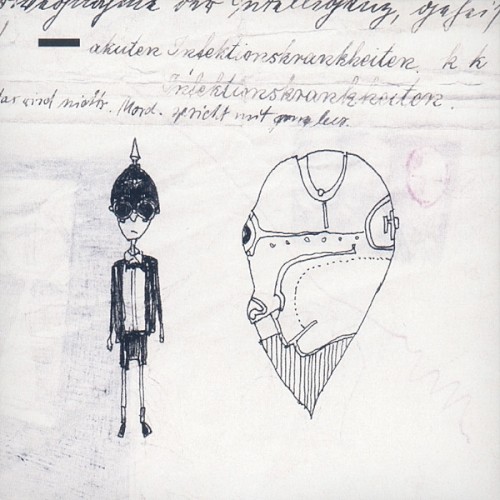 der Intelligenz,
akuten Infektionskrankheiten. k k
Infektionskrankheiten.
wird nicht. Mord. spricht mit